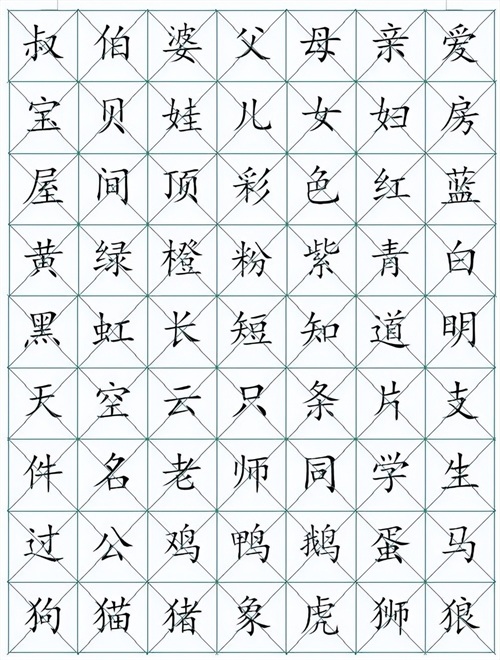 叔伯婆父母亲爱
宝贝娃儿女妇房
屋间顶彩色红蓝
黄绿橙粉紫青白
黑虹长短知道明
天空云只条片支
件名老师同学生
过公鸡鸭鹅蛋马
狗猫猪象虎狮狼